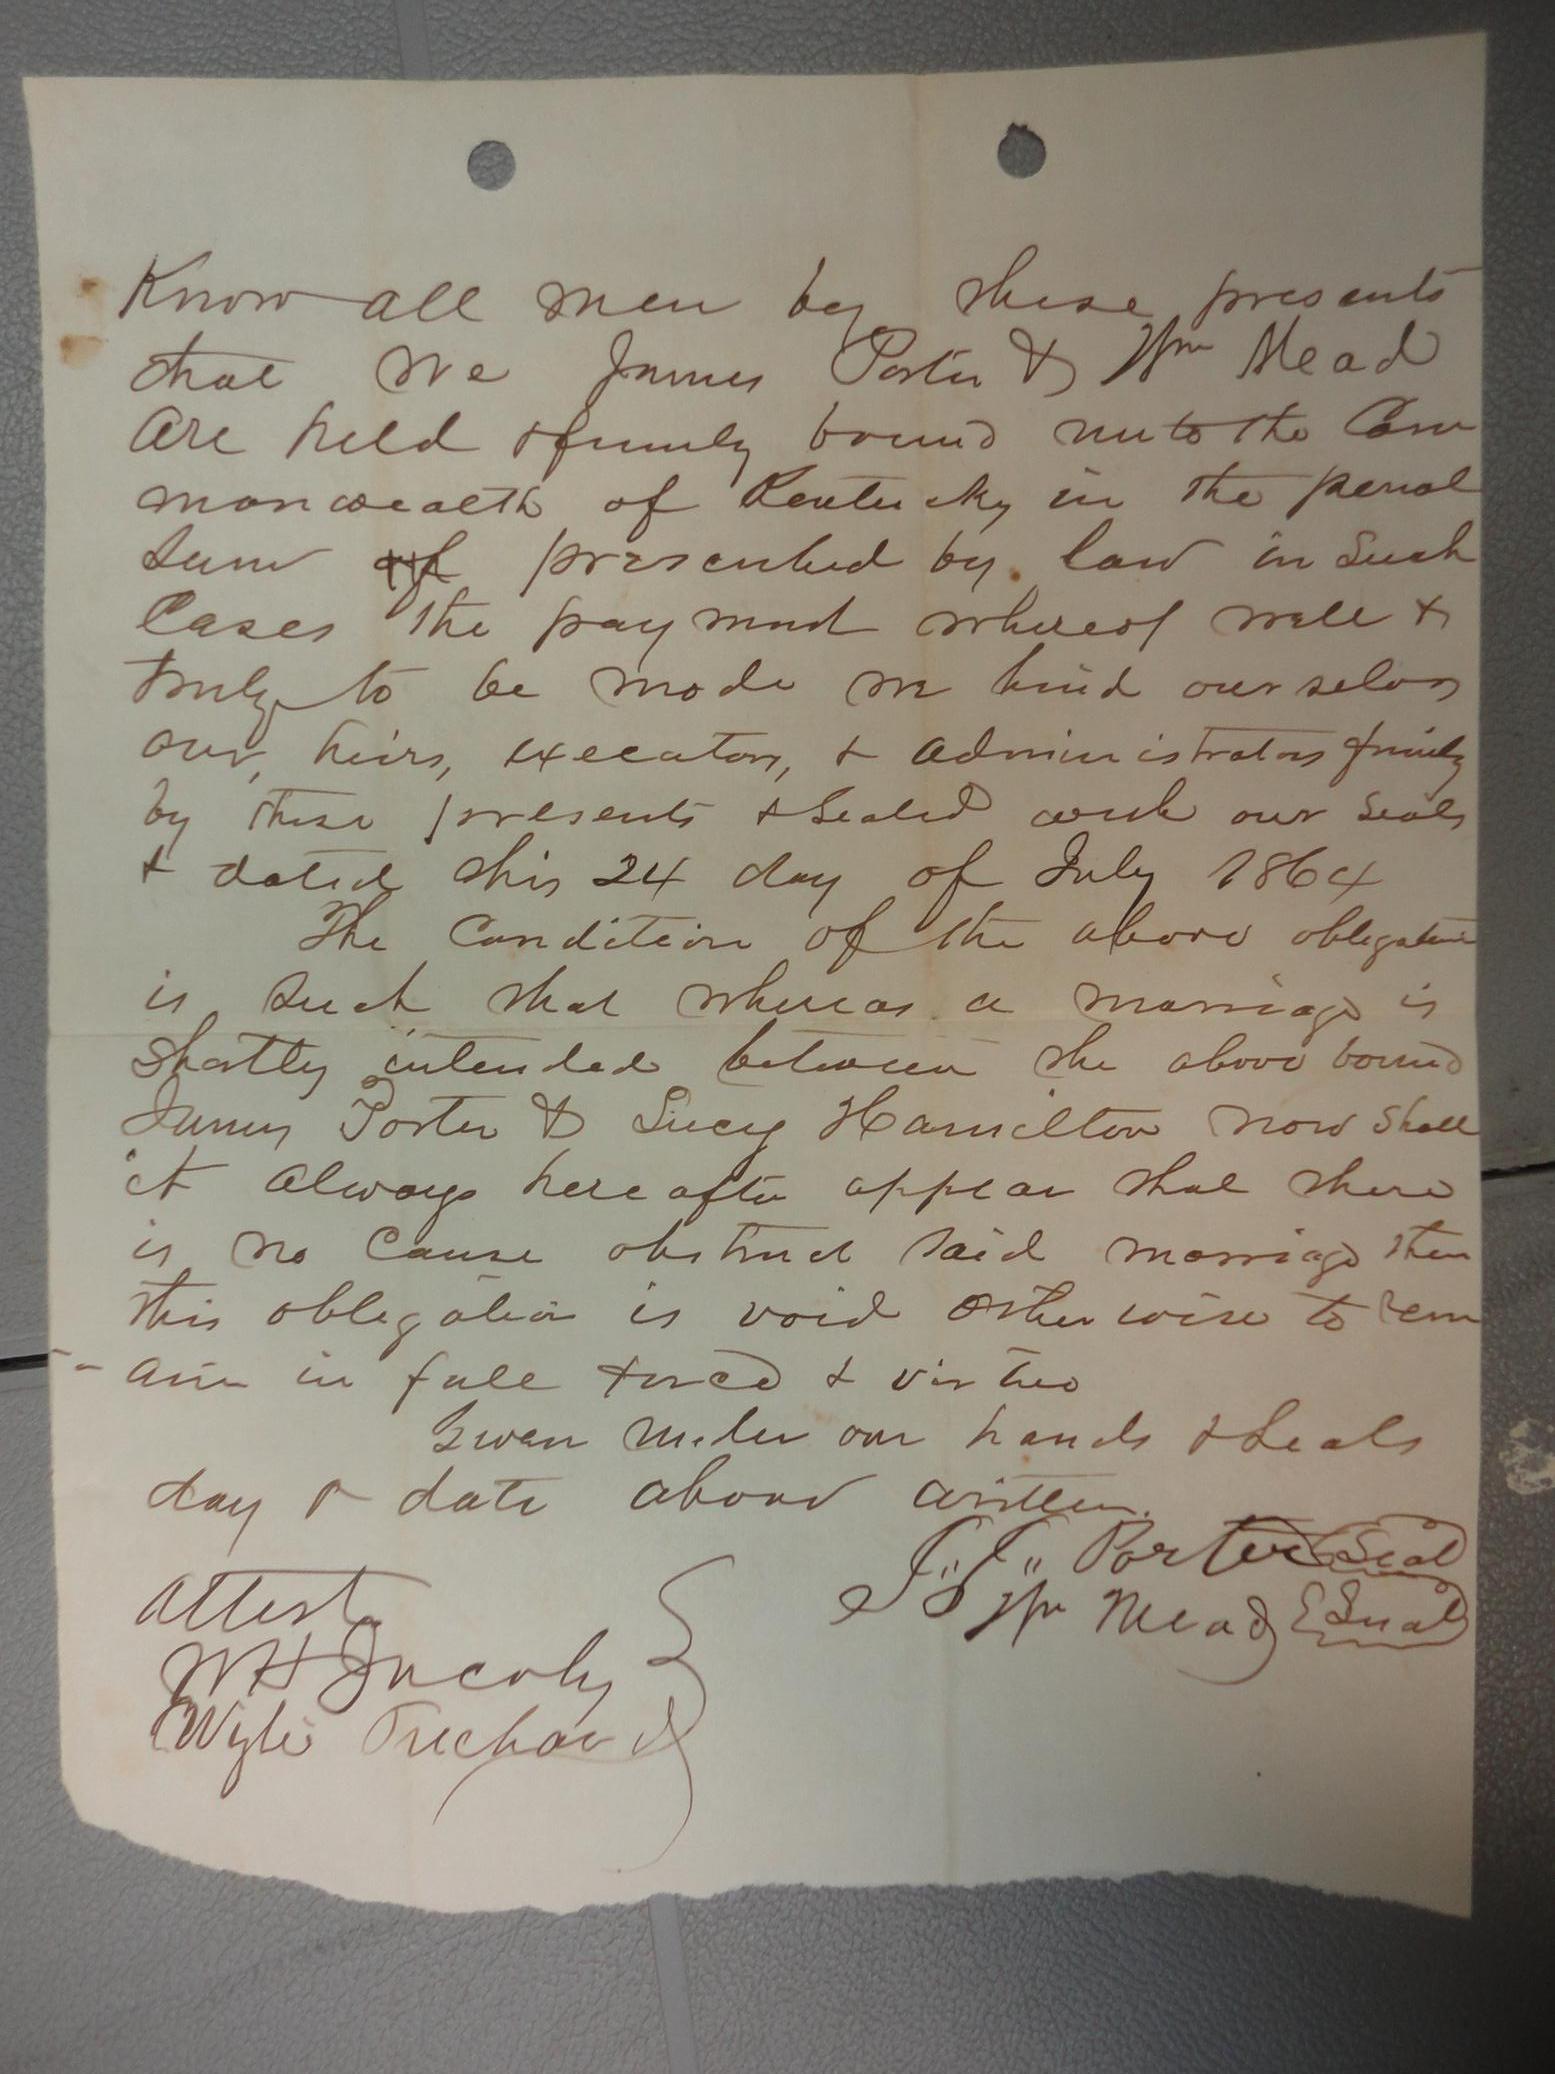 Know all men by these presents
that we James Porter & Wm Mead
are held & firmly bound unto the Com
monwealth of Kentucky in the penal
sum of prescribed by law in such
cases the payment whereof well &
truly to be made we bind ourselves
our, heirs, executors, & administrators firmly
by these presents & sealed with our seals
& dated this 24 day of July 1864
The condition of the above obligation
is such that whereas a marriage is
shortly intended between the above bound
James Porter & Lucy Hamilton now shall
it always hereafter appear that there
is no cause obstruct said marriage then
this obligation is void otherwise to rem
ain in full force & virtue
Given under our hands & seals
day & date above written.
J,, J,, Porter Seal
Wm Mead Seal
Attest
W H Jacoby
Wyle